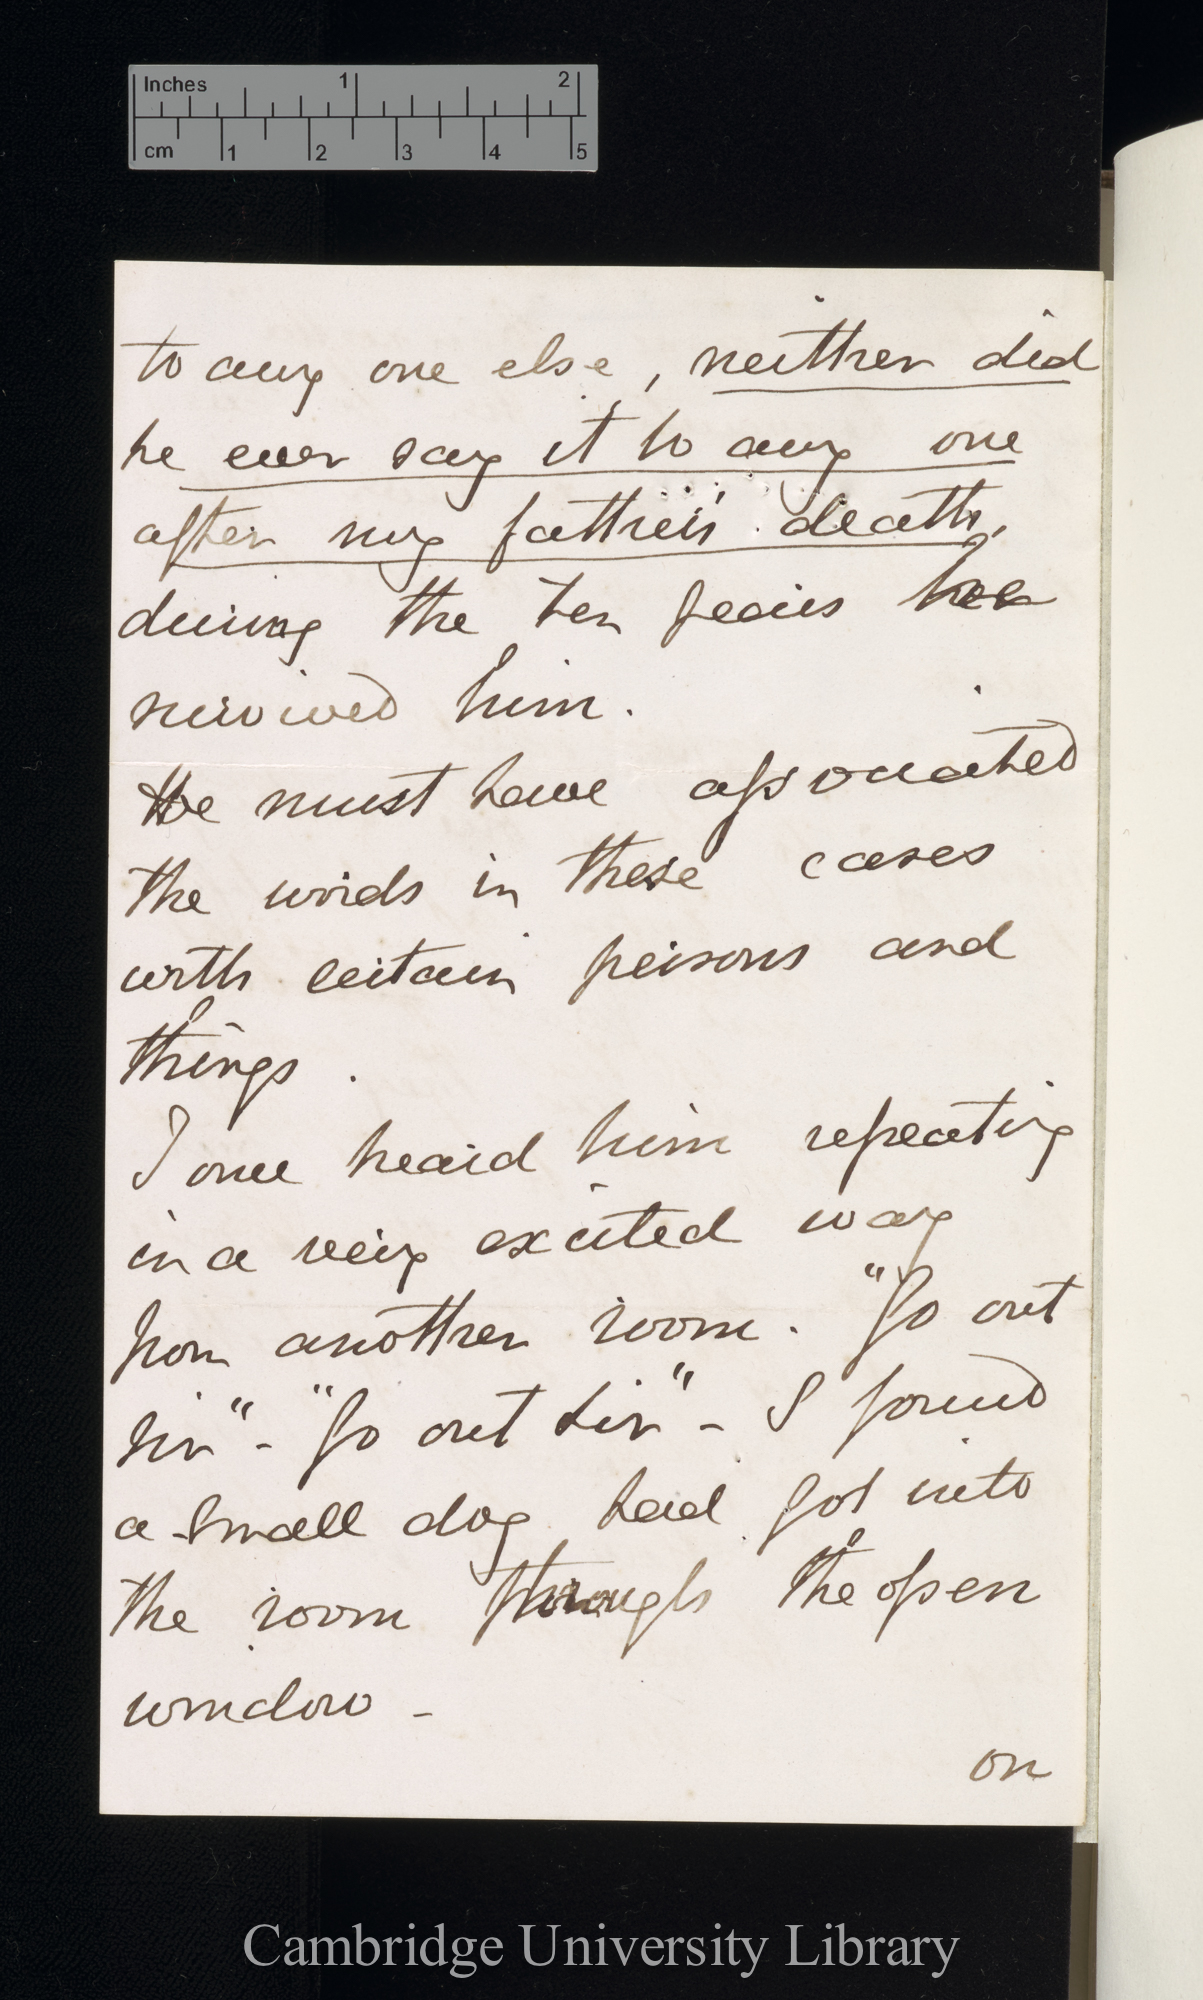 Inches 1 2
cm 1 2 3 4 5
to any one else, neither did
he ever say it to any one
after my father's death,
during the ten years he
survived him.
He must have associated
the words in these cases
with certain persons and
things.
I once heard him repeating
in a very excited way
from another room. "Go out
sir" - "Go out sir" - I found
a small dog had got into
the room through the open
window -
on
Cambridge University Library